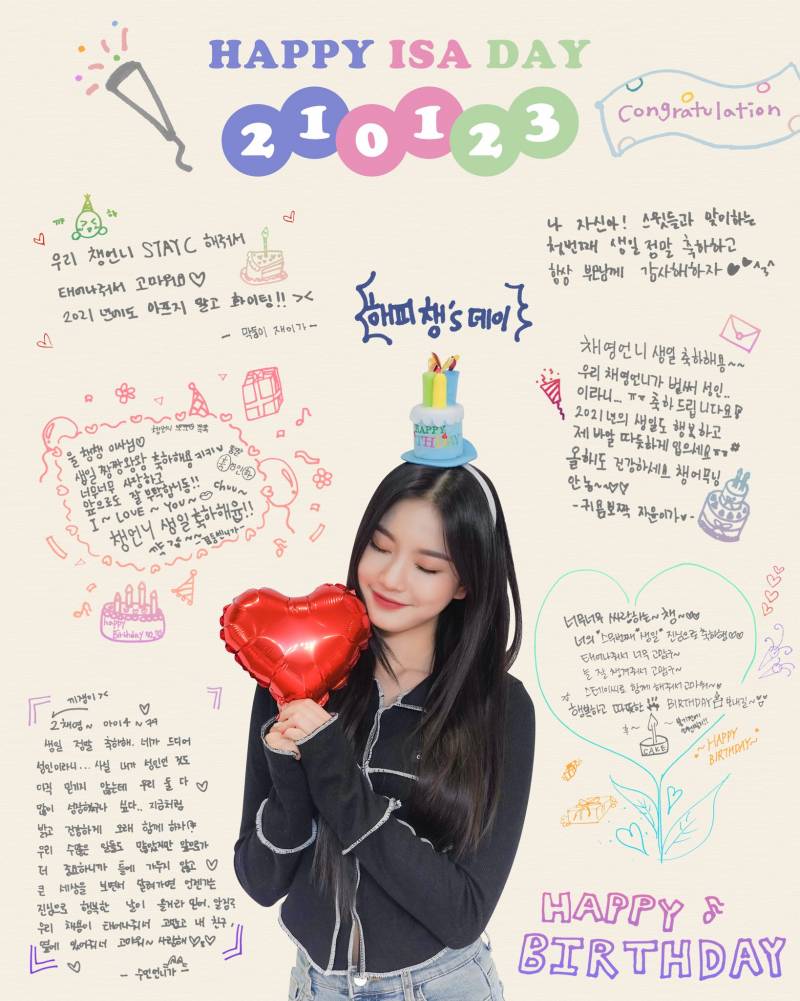 HAPPY ISA DAY
210123
Congratulation
우리 챙언니 STAYC 해줘서
태어나줘서 고마워요♡
2021년에도 아프지 말고 화이팅!! ><
- 막둥이 재이가 -
나 자신아! 스윗들과 맞이하는
첫번째 생일 정말 축하하고
항상 부모님께 감사해하자
해피챙's 데이
HAPPY
BIRTHDAY
채영언니 생일 축하해용~~
우리 채영언니가 벌써 성인..
이라니... ㅠㅠ 축하드립니다요
2021년의 생일도 행복하고
제 바알 따뜻하게 입으세요ㅠㅠ
올해도 건강하세요 챙어무닝
안뇽~
-귀욤뽀짝 자윤이가-
울 챙챙 이사님♡
생일 짱짱 와왕 축하해용 키키
너무너무 사랑하고
앞으로도 잘 부탁합니둥!!
I ~ LOVE ~ YOU ~ chuu~
챙언니 생일축하해윰!!
happy
Birthday
너무너무 싸랑하는~ 챙~♡♡
너의 "스무번째" 생일 진심으로 축하행♡♡
태어나줘서 너무 고맘구~
늘 잘 챙겨줘서 고맘구~
스테이씨로 함께 해줘서 고마워~
행복하고 따뜻한 BIRTHDAY 보내길~
후~ ~
CAKE
~HAPPY
BIRTHDAY~
끼경이 ><
고채영~ 아이4~
생일 정말 축하해. 네가 드디어
성인이라니... 사실 내가 성인인 것도
아직 믿기지 않는데 우리 둘 다 ♡
많이 성장했구나 싶다.. 지금처럼
밝고 건강하게 오래 함께 하자
우리 수많은 일들도 많았지만 앞으로가
더 중요하니까 틀에 가두지 않고 ♡
큰 세상을 보면서 달려가면 언젠가는
진심으로 행복한 날이 올거라 믿어. 알겠지
우리 채영이 태어나줘서 고맙고 내 친구,
옆에 있어줘서 고마워~ 사랑해♡
- 수민언니가 -
HAPPY ♪
BIRTHDAY